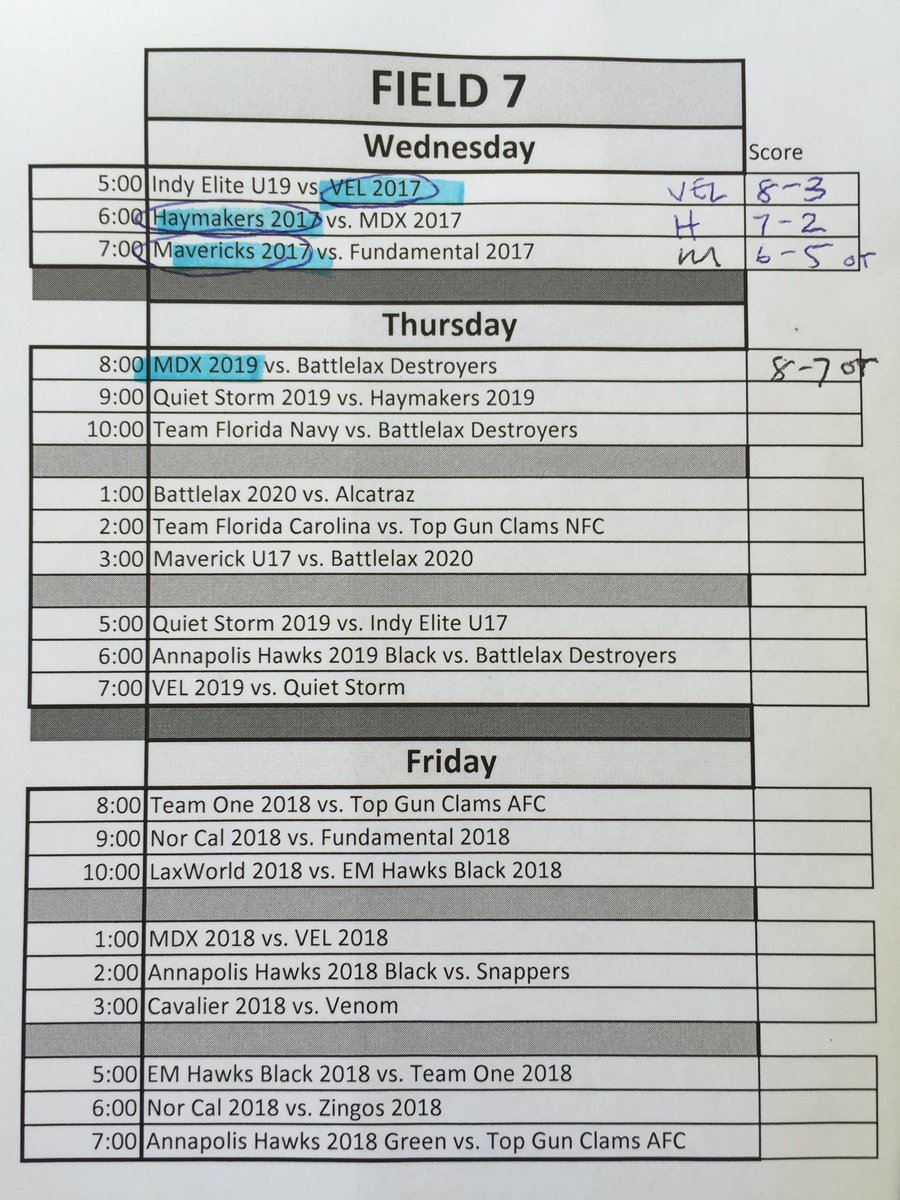 FIELD 7
Wednesday
Score
5:00 Indy Elite U19 vs. VEL 2017 VEL 8-3
6:00 Haymakers 2017 vs. MDX 2017 H 7-2
7:00 Mavericks 2017 vs. Fundamental 2017 M 6-5 OT
Thursday
8:00 MDX 2019 vs. Battlelax Destroyers 8-7 OT
9:00 Quiet Storm 2019 vs. Haymakers 2019
10:00 Team Florida Navy vs. Battlelax Destroyers
1:00 Battlelax 2020 vs. Alcatraz
2:00 Team Florida Carolina vs. Top Gun Clams NFC
3:00 Maverick U17 vs. Battlelax 2020
5:00 Quiet Storm 2019 vs. Indy Elite U17
6:00 Annapolis Hawks 2019 Black vs. Battlelax Destroyers
7:00 VEL 2019 vs. Quiet Storm
Friday
8:00 Team One 2018 vs. Top Gun Clams AFC
9:00 Nor Cal 2018 vs. Fundamental 2018
10:00 LaxWorld 2018 vs. EM Hawks Black 2018
1:00 MDX 2018 vs. VEL 2018
2:00 Annapolis Hawks 2018 Black vs. Snappers
3:00 Cavalier 2018 vs. Venom
5:00 EM Hawks Black 2018 vs. Team One 2018
6:00 Nor Cal 2018 vs. Zingos 2018
7:00 Annapolis Hawks 2018 Green vs. Top Gun Clams AFC